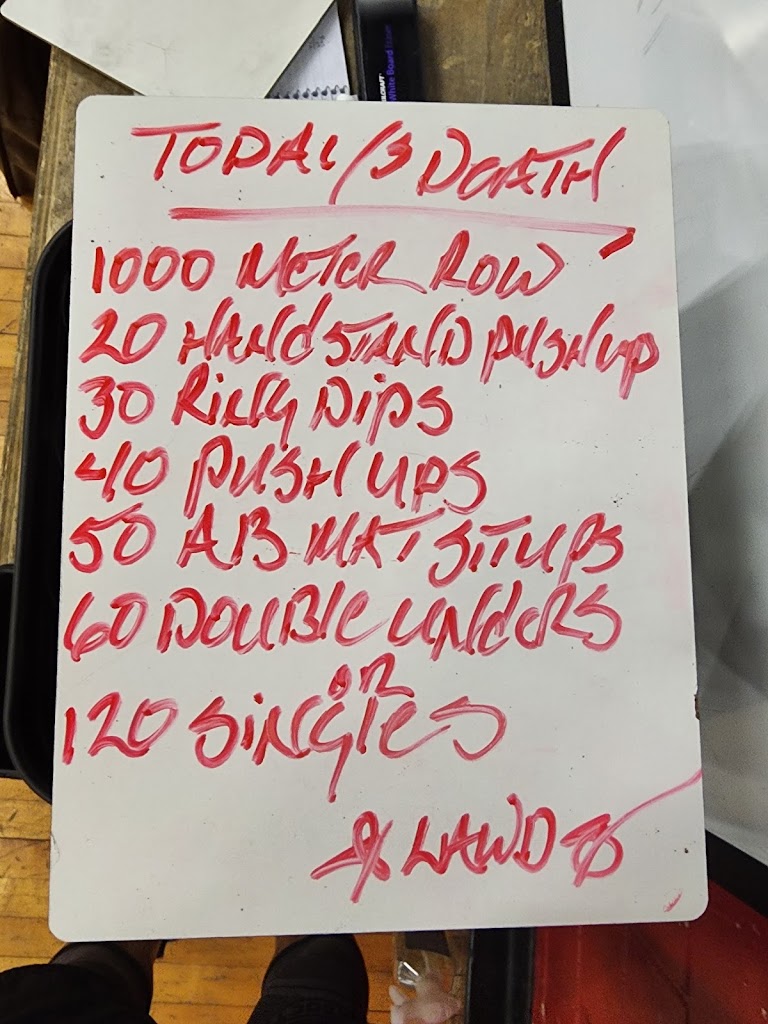 White Board Eraser
TODAY'S DEATH
1000 METER ROW
20 HANdSTAND PUSH UP
30 RiNG DipS
40 PUSH UPS
50 AB MAT SIT UPS
60 DOUBlE UNdERS
OR
120 SiNGlES
LAWD